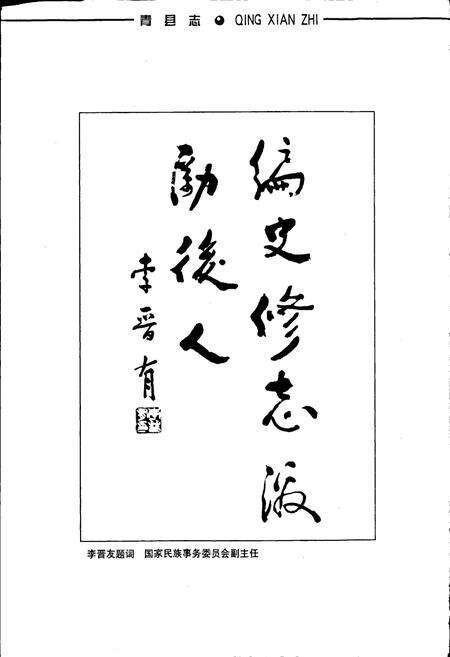 青县志 ● QING XIAN ZHI
编史修志激
励後人
李晋有
李晋友题词 国家民族事务委员会副主任